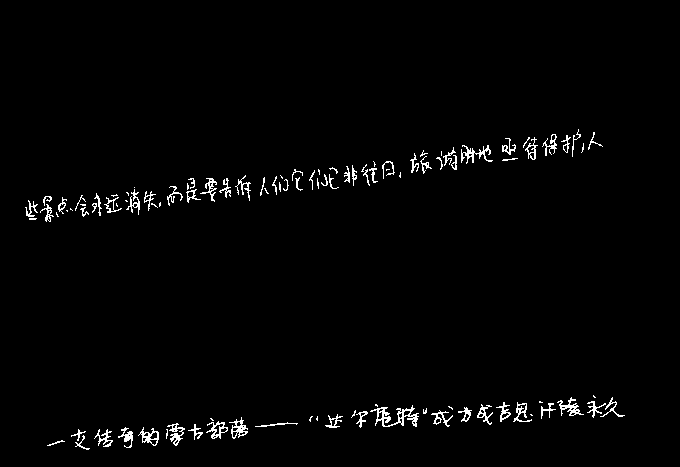 些景点会永远消失,而是要告诉人们它们已非往日,旅游胜地亟待保护,人
一支传奇的蒙古部落——“达尔扈特”成为成吉思汗陵永久